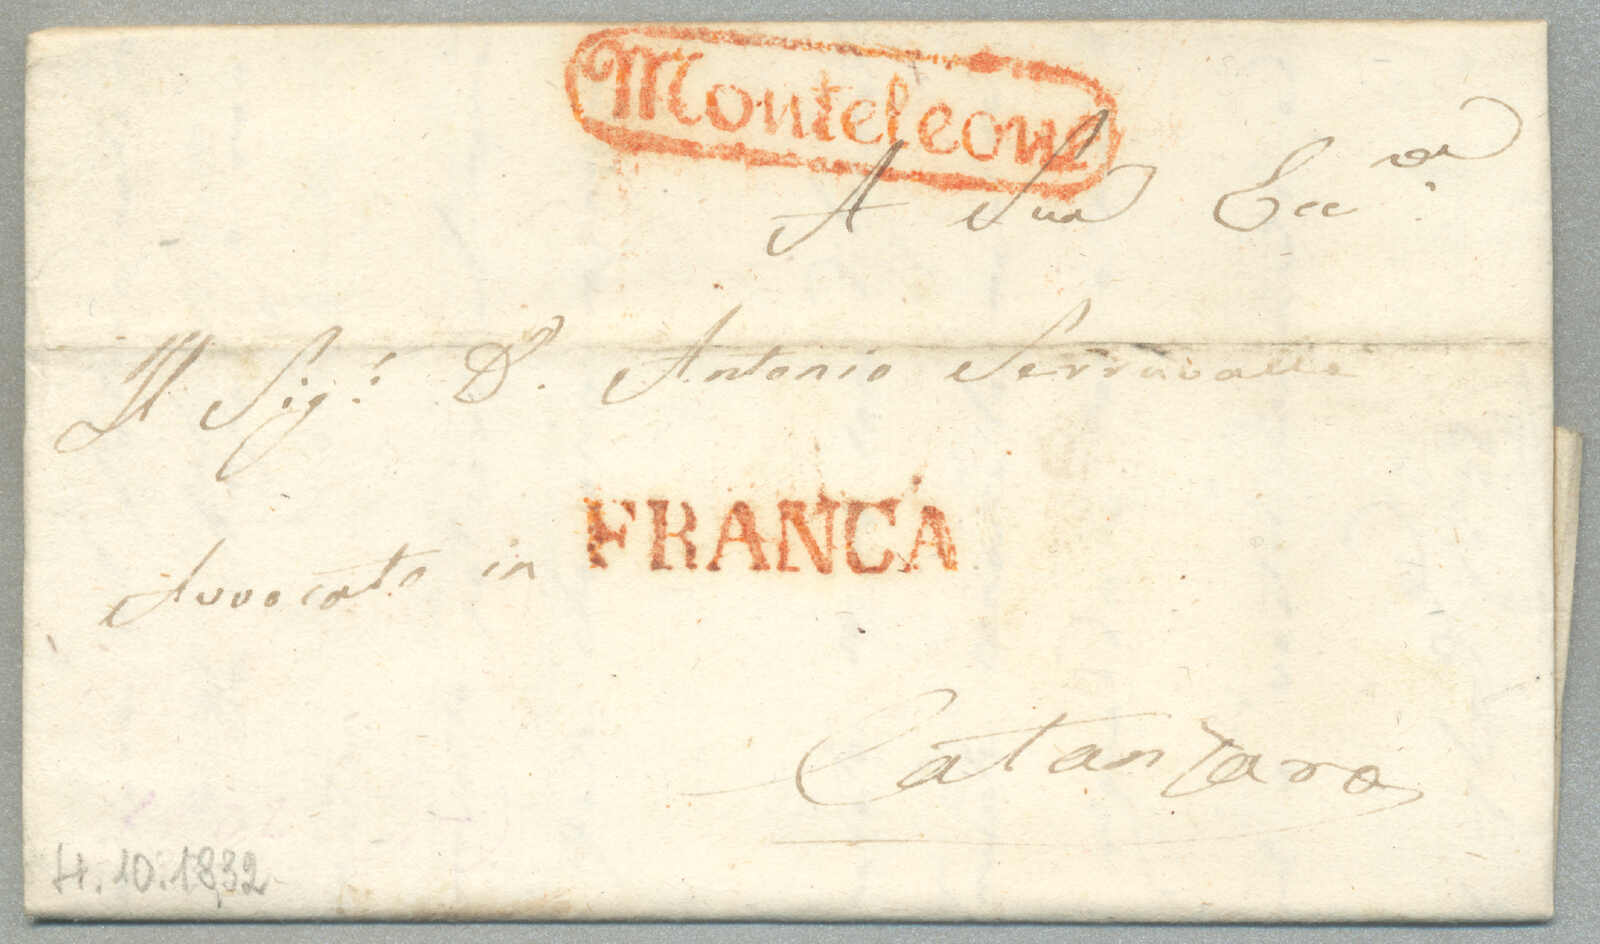 Monteleone
A Sua Ecc.za
Il Sig.r D. Antonio Serravalle
Avvocato in
FRANCA
Catanzaro
4.10.1832